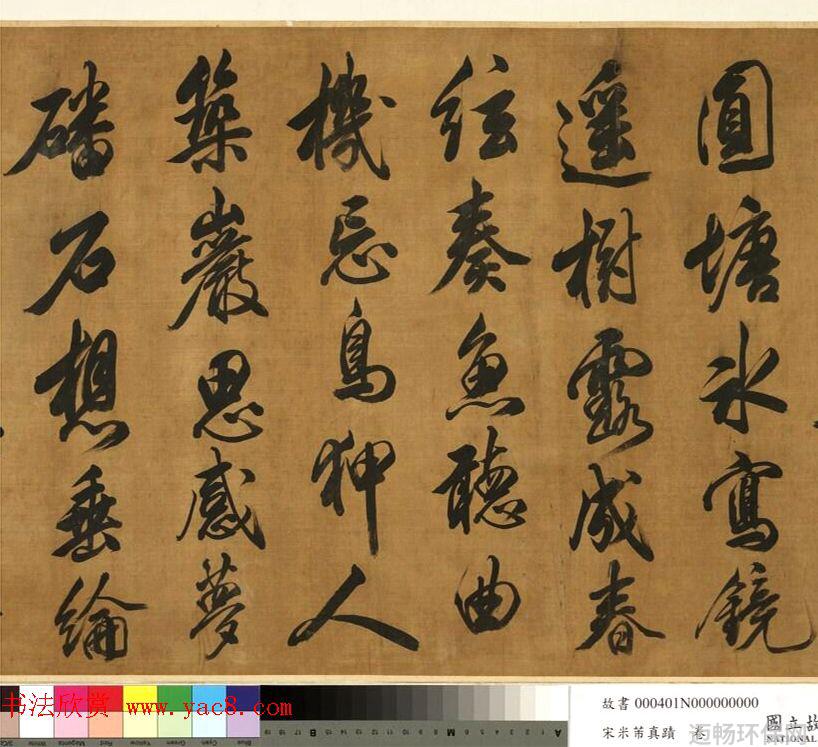 圓塘冰寫鏡
遥樹露成春
弦奏魚聽曲
機忘鳥狎人
築巖思感夢
磻石想垂綸
書法欣赏 www.yac8.com
故書 000401N000000000
宋米芾真蹟 卷
國立故
NATIONAL
迈畅环保网